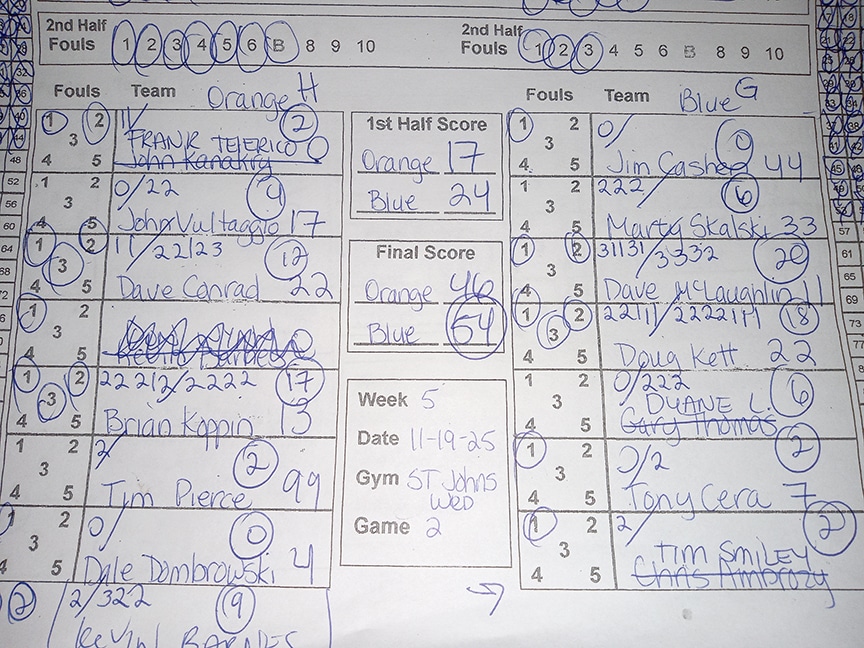 2nd Half Fouls 1 2 3 4 5 6 B 8 9 10
2nd Half Fouls 1 2 3 4 5 6 B 8 9 10
Fouls Team Orange H
1 2 3 4 5
11/ 2
FRANK TELERICO 0
John Kanakry
1 2 3 4 5
0/22 4
John Vultaggio 17
1 2 3 4 5
11/22123 12
Dave Conrad 22
1 2 3 4 5
1 2 3 4 5
22212/2222 17
Brian Koppin 13
1 2 3 4 5
2/ 2
Tim Pierce 99
1 2 3 4 5
0/ 0
Dale Dombrowski 4
2
2/322 9
KEVIN BARNES
1st Half Score
Orange 17
Blue 24
Final Score
Orange 46
Blue 54
Week 5
Date 11-19-25
Gym ST Johns
WED
Game 2
Fouls Team Blue G
1 2 3 4 5
0/ 0
Jim Casher 44
1 2 3 4 5
222/ 6
Marty Skalski 33
1 2 3 4 5
31131/3332 20
Dave McLaughlin 11
1 2 3 4 5
22111/2222111 18
Doug Kett 22
1 2 3 4 5
0/222 6
DUANE L.
Gary Thomas
1 2 3 4 5
0/2 2
Tony Cera 7
1 2 3 4 5
2/ 2
TIM SMILEY
Chris Ambrozy
48
52
56
60
64
68
72
76
57
61
65
69
73
77